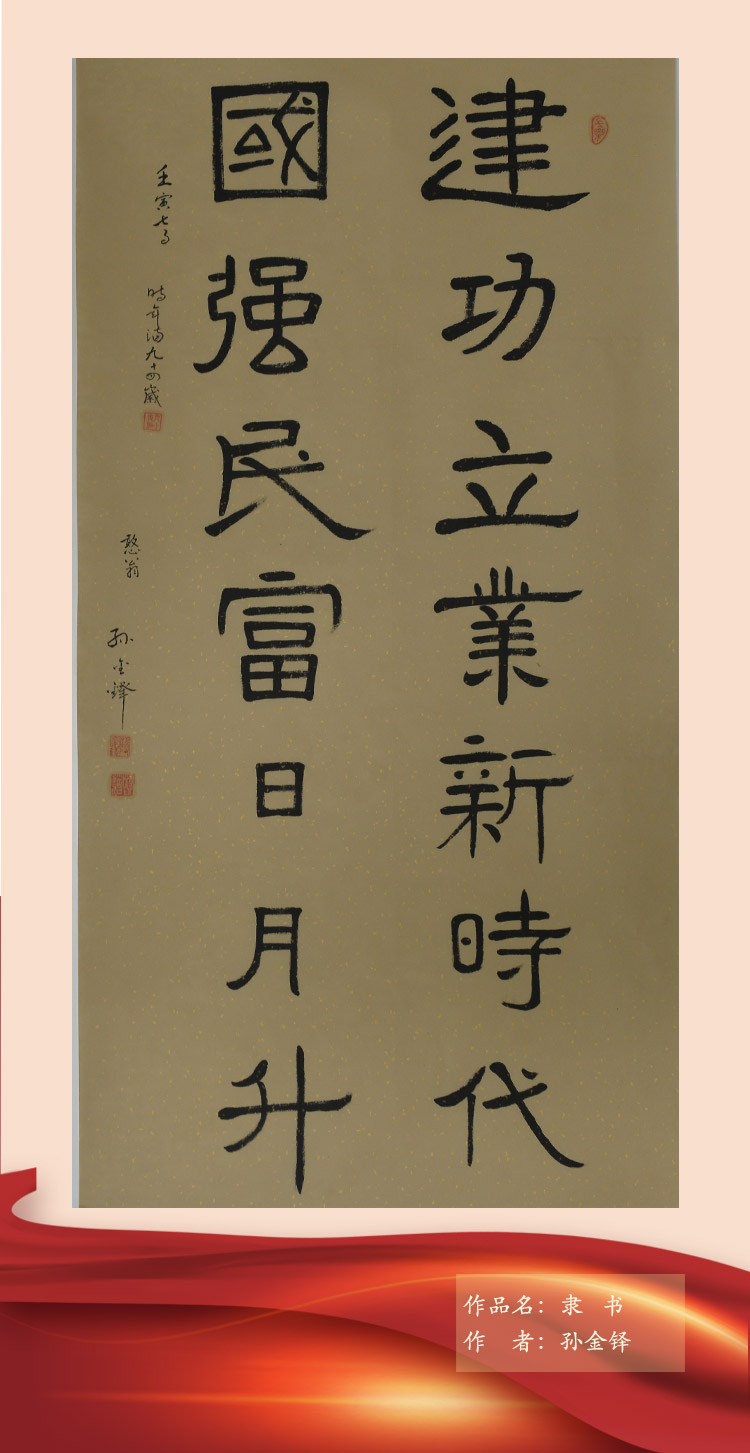 建功立業新時代
國强民富日月升
壬寅七月
時年满九十四歲
憨翁
孙金鐸
作品名：隶 书
作 者：孙金铎